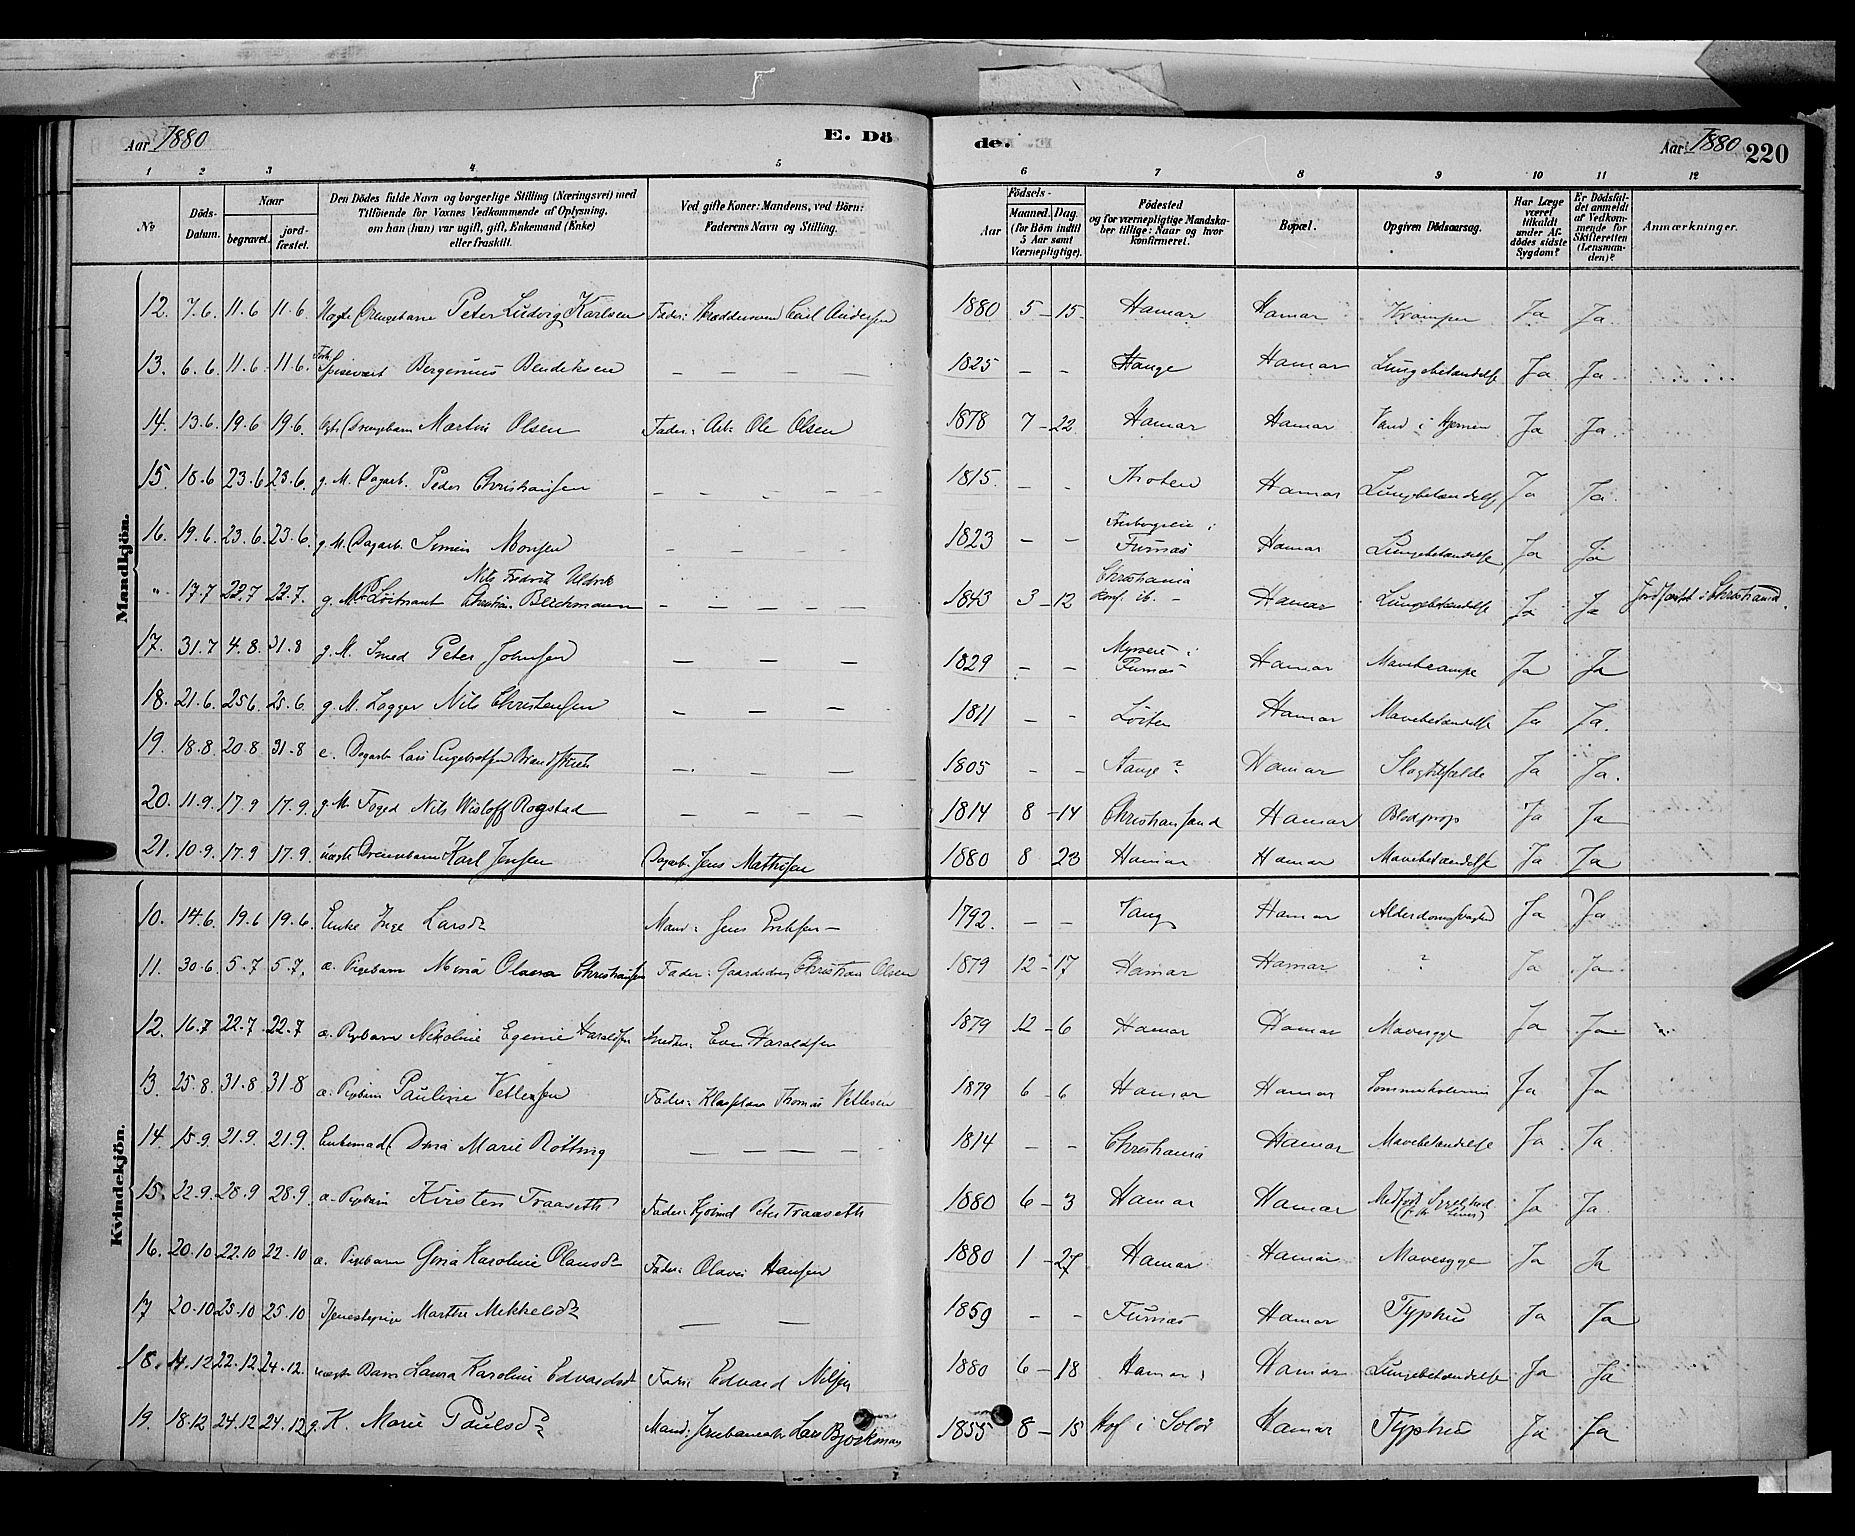 Aar 1880
E. Dö
de.
Aar 1880
220
1 2 3 4 5 6 7 8 9 10 11 12
No
Döds-Datum.
Naar
begravet.
jord-fæstet.
Den Dödes fulde Navn og borgerlige Stilling (Næringsvei) med
Tilföiende for Voxnes Vedkommende af Oplysning,
om han (hun) var ugift, gift, Enkemand (Enke)
eller fraskilt.
Ved gifte Koner: Mandens, ved Börn:
Faderens Navn og Stilling.
Födsels-
Aar
Maaned. Dag.
(for Börn indtil
5 Aar samt
Værnepligtige).
Födested
og for værnepligtige Mandska-
ber tillige: Naar og hvor
konfirmeret.
Bopæl.
Opgiven Dödsaarsag.
Har Læge
været
tilkaldt
under Af-
dödes sidste
Sygdom?
Er Dödsfal-
det anmeldt
af Vedkom-
mende for
Skifteretten
(Lensman-
den)?
Anmærkninger.
Mandkjön.
12. 7.6. 11.6 11.6. Uægte Drengebarn Peter Ludvig Karlsen Fader: Skræddersvend Carl Andersen 1880 5 - 15 Hamar Hamar Kramper Ja Ja
13. 6.6. 11.6 11.6. Spisevært Bergenius Bendiksen — — — — 1825 — — Stange Hamar Lungebetændelse Ja Ja
14. 13.6. 19.6 19.6. Drengebarn Martin Olsen Fader: Arb. Ole Olsen 1878 7 - 22 Hamar Hamar Vand i Hjernen Ja Ja
15. 18.6 23.6 23.6. g. M. Dagarb. Peder Christiansen — — — — 1815. — — Thoten Hamar Lungebetændelse Ja Ja
16. 19.6. 23.6. 23.6. g. M. Dagarb. Simen Monsen — — — — 1823 — — i Furnæs Hamar Lungebetændelse Ja Ja
" 17.7 22.7 22.7. g. M. Nils Fredrik Uldrik Christian Bleckmann — — — — 1843 3 - 12 Christiania konf. ib. — Hamar Lungebetændelse Ja Ja Jordfæstet i Christiania.
17. 31.7 4.8. 31.8 g. M. Smed Peter Johnsen — — — 1829 — — i Furnæs Hamar Mavekrampe Ja Ja
18. 21.6. 25.6. 25.6. g. M. Logger Nils Christensen — — — 1811 — — Löiten Hamar Mavebetændelse Ja Ja.
19. 18.8. 20.8. 31.8 e. Dagarb. Lars Engebretsen — — — 1805 — — Stange? Hamar Slagtilfælde Ja Ja.
20. 11.9. 17.9 17.9. g. M. Foged Nils Wisloff Rogstad — — — 1814 8 - 14 Christiansand Hamar Blodprop Ja Ja
21. 10.9. 17.9 17.9. uægte Drengebarn Karl Jensen Dagarb. Jens Mathisen 1880 8 - 23 Hamar Hamar Mavebetændelse Ja Ja
Kvindekjön.
10. 14.6. 19.6 19.6. Enke Inge Larsd. Mand: Jens Eriksen — 1792. — — Vang Hamar Alderdomssvaghed Ja Ja
11. 30.6. 5.7 5.7. æ. Pigebarn Olava Christiansen Fader: Gaardsdreng Christian Olsen 1879 12 - 17 Hamar Hamar ? Ja Ja
12. 16.7 22.7 22.7 æ. Pigebarn Nikoline Egenie Haraldsen Even Haraldsen 1879 12 - 6 Hamar Hamar Mavesyge Ja Ja
13. 25.8. 31.8 31.8 æ. Pigebarn Pauline Vettesen Fader: Thomas Vettesen 1879 6 - 6 Hamar Hamar Sommerkolerine Ja Ja
14. 15.9. 21.9. 21.9. Marie Rötting — — — — 1814 — — Christiania Hamar Mavebetændelse Ja Ja.
15. 22.9. 28.9 28.9. æ. Pigebarn Kristen Traaseth Fader: Kjöbmd Peter Traaseth 1880 6 - 3 Hamar Hamar Medfödt Svaghed Ja Ja.
16. 20.10 22.10 22.10 æ. Pigebarn Karoline Olausd. Fader: Olaves Hansen 1880 1 - 27 Hamar Hamar Mavesyge Ja Ja
17 20.10 25.10 25.10 Tjenestepige Marthe Mekkelsd. — — 1859 — — Furnæs Hamar Typhus Ja Ja
18. 14.12 22.12. 24.12. uægte Barn Laura Karoline Edvardsd. Fader Edvard Nilsen 1880 6 - 18 Hamar Hamar Lungebetændelse Ja Ja
19. 18.12 24.12 24.12 g. K. Marie Paulsd. Mand: Lars Bjorkman 1855 8 - 15 Hof i Solör Hamar Typhus Ja Ja